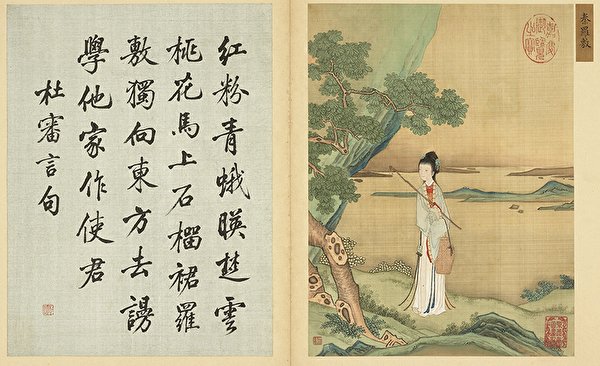 秦羅敷
紅粉青蛾暎楚雲
桃花馬上石榴裙羅
敷獨向東方去謾
學他家作使君
杜審言句